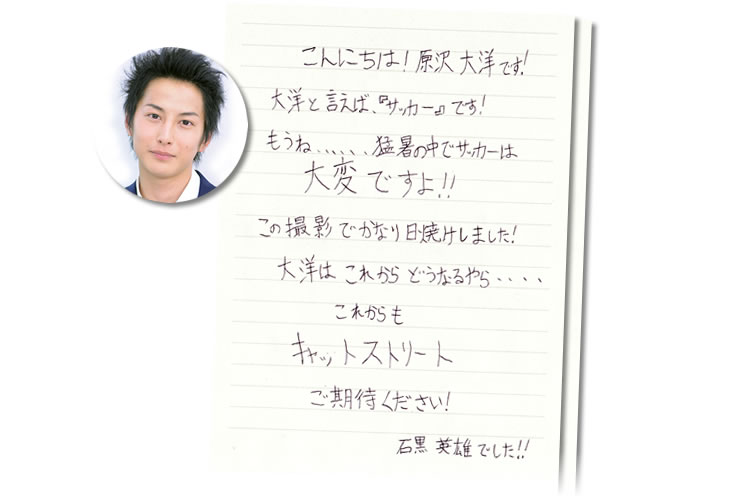 こんにちは！原沢 大洋です！
大洋と言えば、『サッカー』です！
もうね、、、、、、猛暑の中でサッカーは
大変ですよ！！
この撮影でかなり日焼けしました！
大洋は これから どうなるやら・・・・
これからも
キャットストリート
ご期待ください！
石黒 英雄でした！！